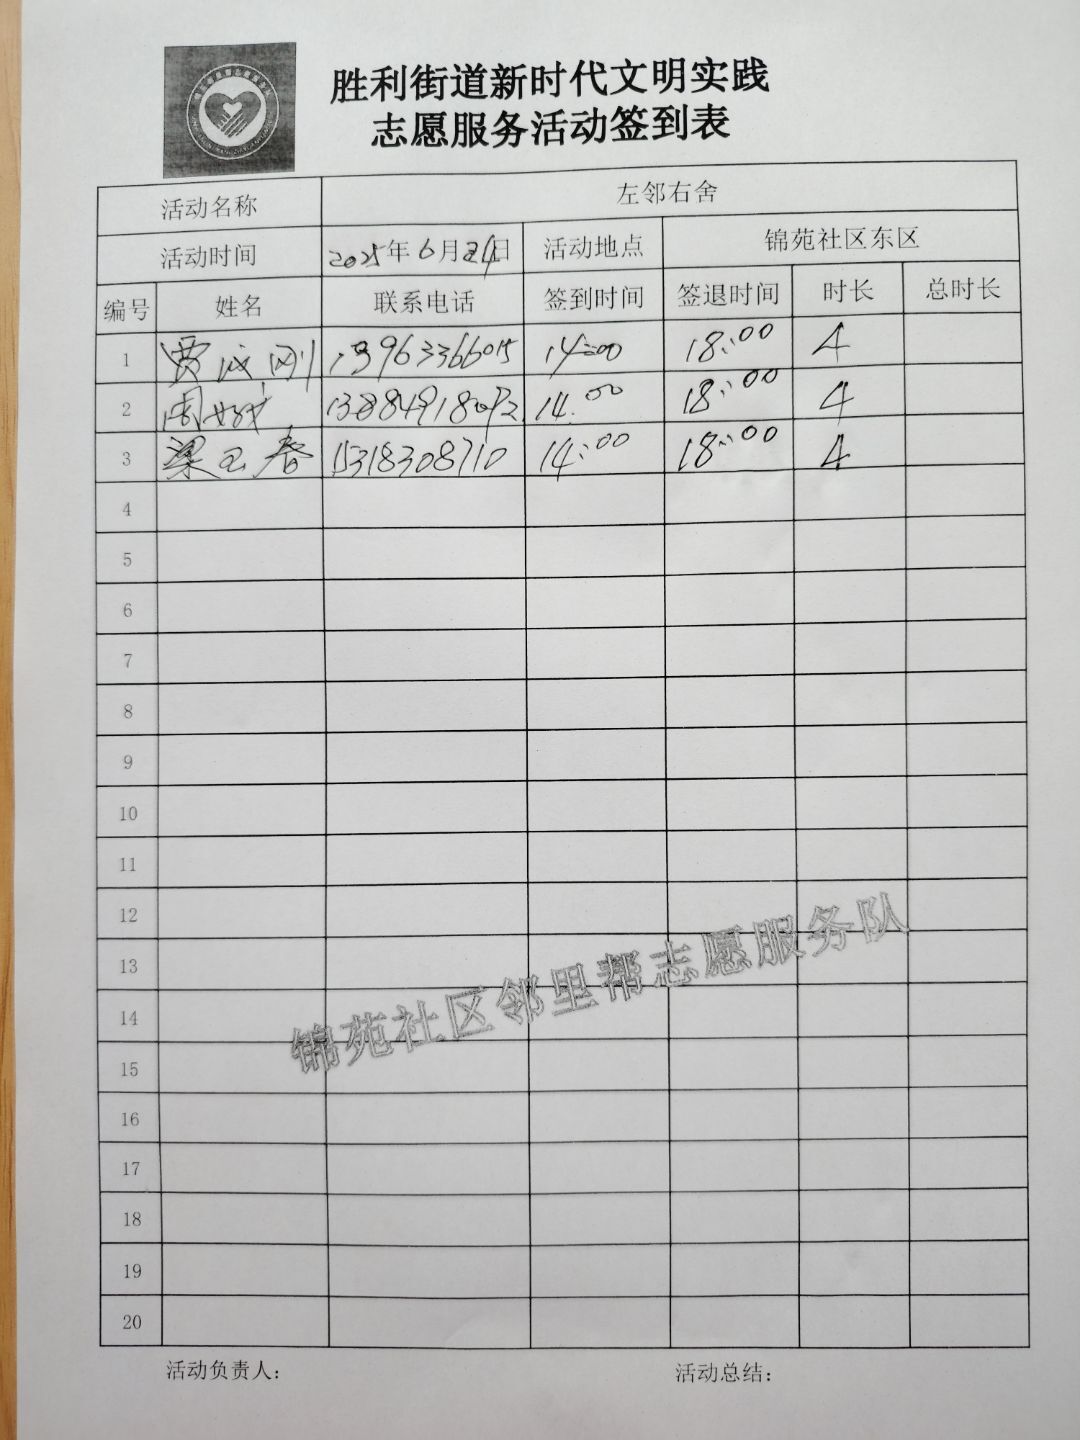 胜利街道新时代文明实践
志愿服务活动签到表
活动名称 左邻右舍
活动时间 2025年6月24日 活动地点 锦苑社区东区
编号 姓名 联系电话 签到时间 签退时间 时长 总时长
1 贾成刚 13963366015 14:00 18:00 4
2 周 14:00 18:00 4
3 梁玉春 15318308710 14:00 18:00 4
4
5
6
7
8
9
10
11
12
13
14
15
16
17
18
19
20
锦苑社区邻里帮志愿服务队
活动负责人： 活动总结：